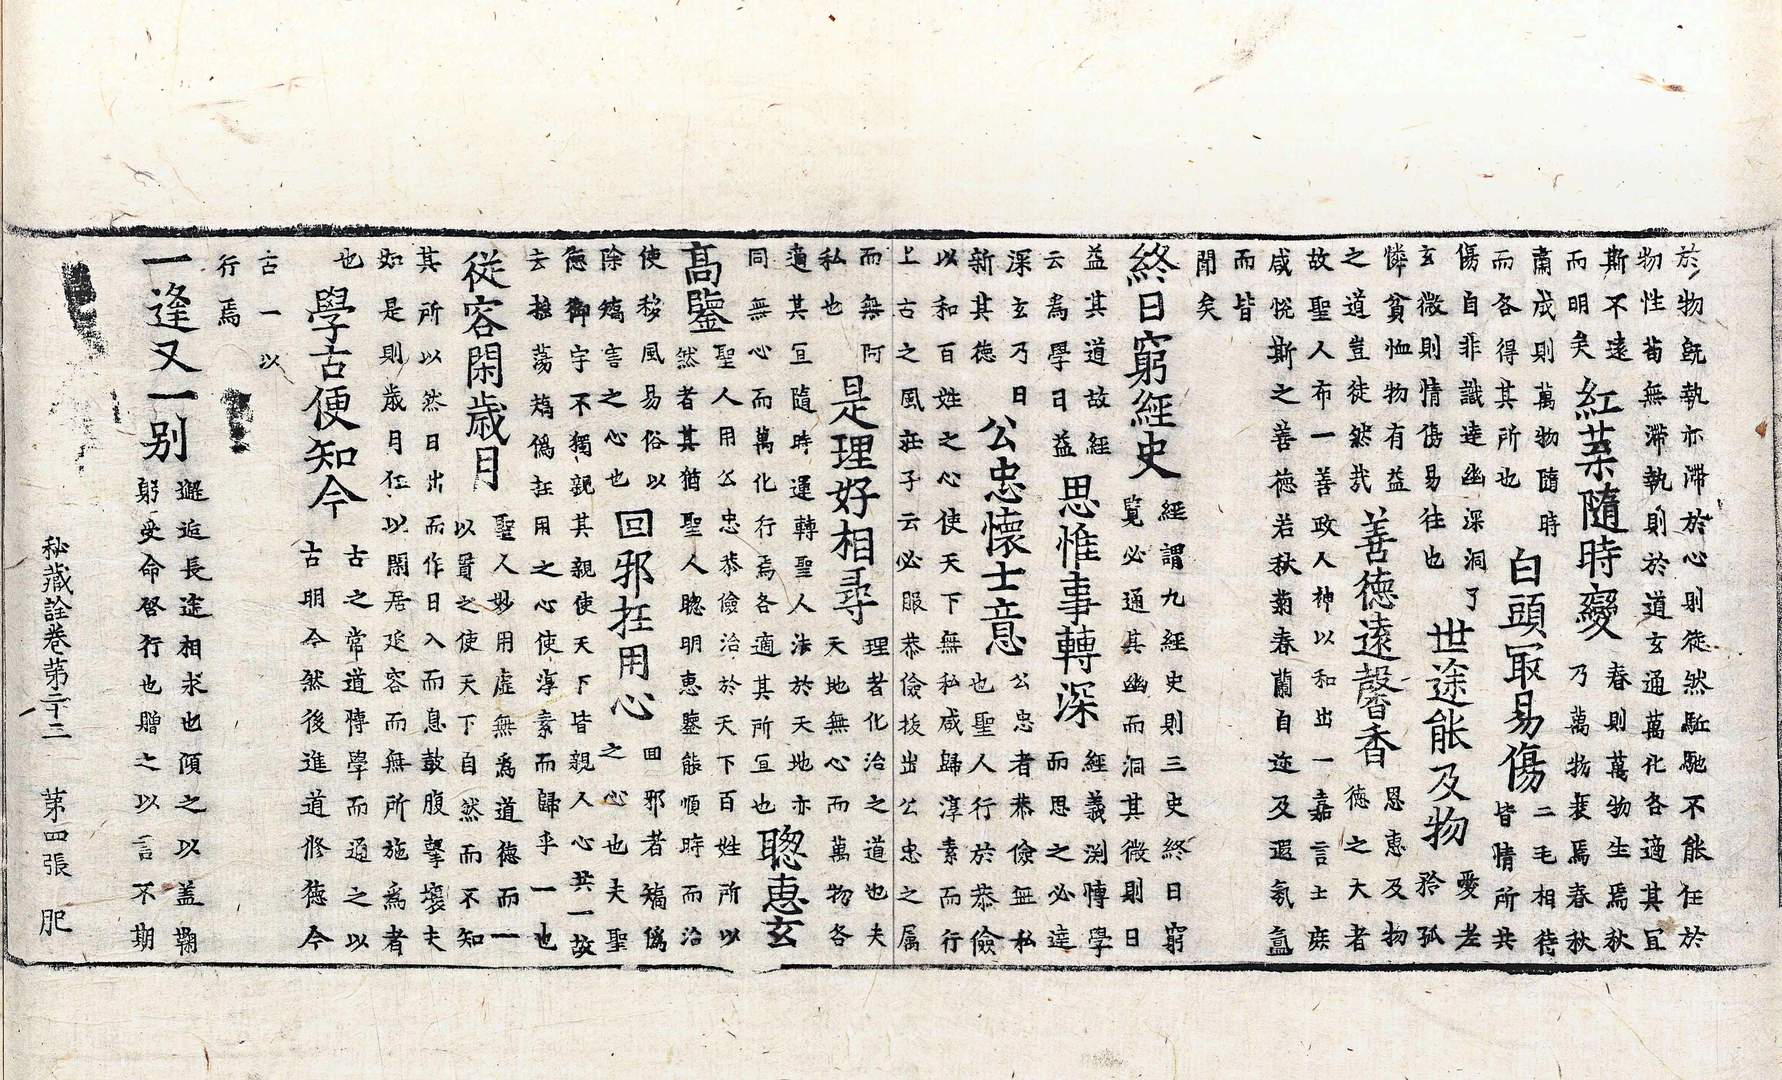 於物旣執亦滯於心則徒然駈馳不能任於
物性苟無滯執則於道玄通萬化各適其宜
斯不遠
而明矣
紅蘂隨時變
春則萬物生焉秋
乃萬物衰焉春秋
肅成則萬物隨時
而各得其所也
白頭冣易傷
二毛相待
皆情所共
傷自非識達幽深洞了
玄微則情傷易往也
世途能及物
愛老
矜孤
憐貧恤物有益
之道豈徒然哉
善德遠馨香
恩惠及物
德之大者
故聖人布一善政人神以和出一嘉言士庶
咸悅斯之善德若秋菊春蘭自迩及遐氛氳
而皆
聞矣
終日窮經史
經謂九經史則三史終日窮
覽必通其幽而洞其微則日
益其道故經
云爲學日益
思惟事轉深
經義渕博學
而思之必達
深玄乃日
新其德
公忠懷士意
公忠者恭儉無私
也聖人行於恭儉
以和百姓之心使天下無私咸歸淳素而行
上古之風莊子云必服恭儉拔出公忠之属
而無阿
私也
是理好相尋
理者化治之道也夫
天地無心而萬物各
適其宜隨時運轉聖人法於天地亦
同無心而萬化行焉各適其所宜也
聦惠玄
高鑒
聖人用公忠恭儉治於天下百姓所以
然者其猶聖人聦明惠鑒能順時而治
使移風易俗以
除矯言之心也
回邪抂用心
回邪者矯僞
之心也夫聖
德御宇不獨親其親使天下皆親人心共一故
去抂蕩矯僞抂用之心使淳素而歸乎一也
從容閑歲月
聖人妙用虛無爲道德而一
以貫之使天下自然而不知
其所以然日出而作日入而息鼓腹擊壤夫
如是則歲月任以閑居延容而無所施爲者
也
學古便知今
古之常道博學而通之以
古明今然後進道修德今
古一以
行焉
一逢又一别
邂逅長途相求也傾之以蓋鞠
躬受命啓行也贈之以言不期
秘藏詮卷第二十三 第四張 肥